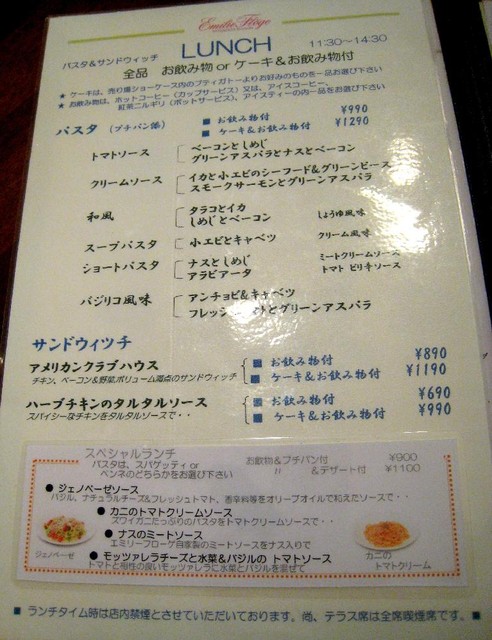 Emilie Flöge
パスタ&サンドウィッチ LUNCH 11:30~14:30
全品 お飲み物 or ケーキ&お飲み物付
★ ケーキは、売り場ショーケース内のプティガトーよりお好みのものを一品お選び下さい
★ お飲み物は、ホットコーヒー(カップサービス)又は、アイスコーヒー、
紅茶ニルギリ(ポットサービス)、アイスティーの内一品をお選び下さい
パスタ (プチパン付) ■ お飲み物付 ¥990
■ ケーキ&お飲み物付 ¥1290
トマトソース ベーコンとしめじ
グリーンアスパラとナスとベーコン
クリームソース イカと小エビのシーフード&グリーンピース
スモークサーモンとグリーンアスパラ
和風 タラコとイカ しょうゆ風味
しめじとベーコン
スープパスタ 小エビとキャベツ クリーム風味
ショートパスタ ナスとしめじ ミートクリームソース
アラビアータ トマト ピリ辛ソース
バジリコ風味 アンチョビ&キャベツ
フレッシュ とグリーンアスパラ
サンドウィツチ
アメリカンクラブハウス ■ お飲み物付 ¥890
チキン、ベーコン&野菜ボリューム満点のサンドウィッチ ■ ケーキ&お飲み物付 ¥1190
ハーブチキンのタルタルソース ■ お飲み物付 ¥690
スパイシーなチキンをタルタルソースで・・ ■ ケーキ&お飲み物付 ¥990
スペシャルランチ
パスタは、スパゲッティ or お飲物&プチパン付 ¥900
ペンネのどちらかをお選び下さい 〃 &デザート付 ¥1100
● ジェノベーゼソース
バジル、ナチュラルチーズ&フレッシュトマト、香辛料等をオリーブオイルで和えたソースで・・
● カニのトマトクリームソース
ズワイガニたっぷりのパスタをトマトクリームソースで・・
● ナスのミートソース
エミリーフローゲ自家製のミートソースをナス入りで
● モッツァレラチーズと水菜&バジルの トマトソース
トマトと相性の良いモッツァレラに水菜とバジルを混ぜて
ジェノベーゼ
カニの
トマトクリーム
■ ランチタイム時は店内禁煙とさせていただいております。尚、テラス席は全席喫煙席です。 ■